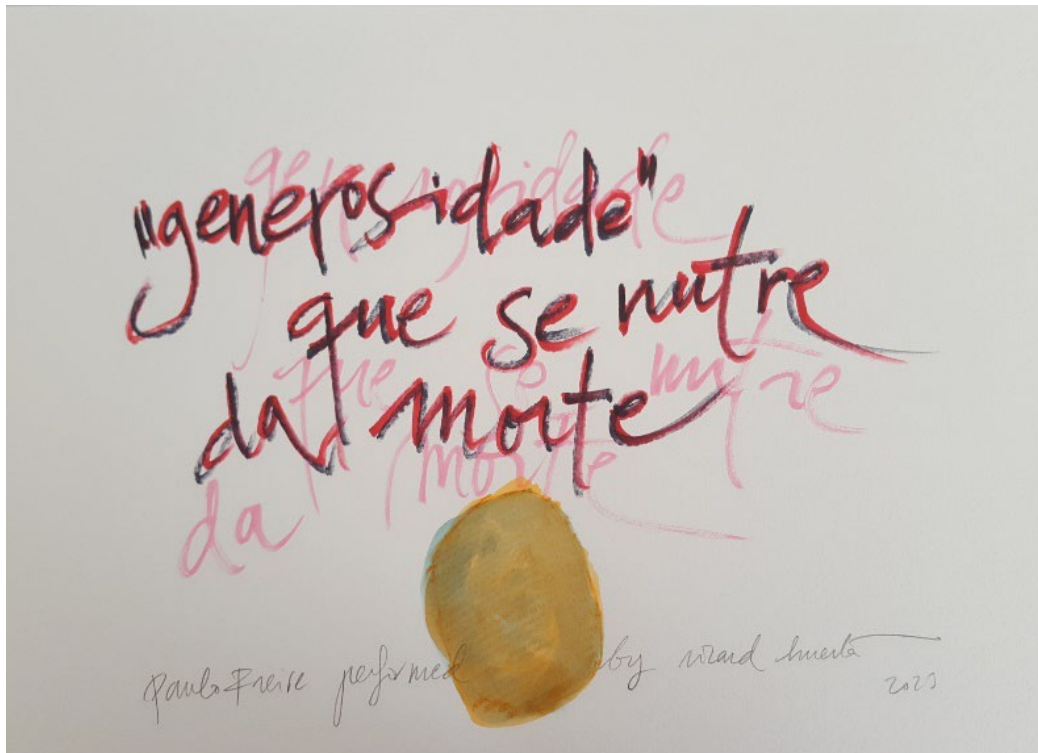 "generosidade"
que se nutre
da morte
generosidade
que se nutre
da morte
Paulo Freire performed by ricard huerta
2023